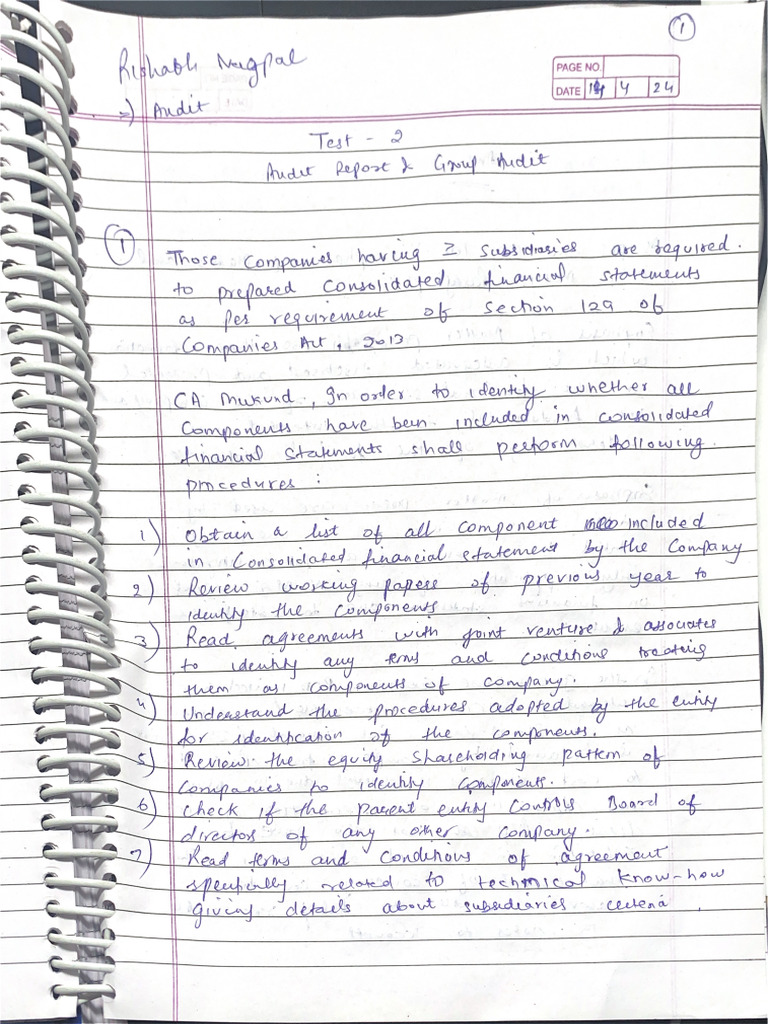 1
Rishabh Nagpal
PAGE NO.
DATE 14 4 24
=) Audit
Test - 2
Audit Report & Group Audit
1 Those Companies having ≥ subsidiaries are required.
to prepared Consolidated financial statements
as per requirement of Section 129 of
Companies Act, 2013
CA Mukund, In order to identify whether all
Components have been included in consolidated
financial statements shall perform following.
procedures :
1) Obtain a list of all component included
in Consolidated financial statement by the Company
2) Review working papers of previous year to
identify the components
3) Read agreements with joint venture & associates
to identify any terms and conditions treating
them as components of company.
4) Understand the procedures adopted by the entity
for identification of the components.
5) Review the equity shareholding pattern of
Companies to identify components.
6) Check if the parent entity controls Board of
director of any other company.
7) Read terms and conditions of agreement
specifically related to technical know-how
giving details about subsidiaries criteria.